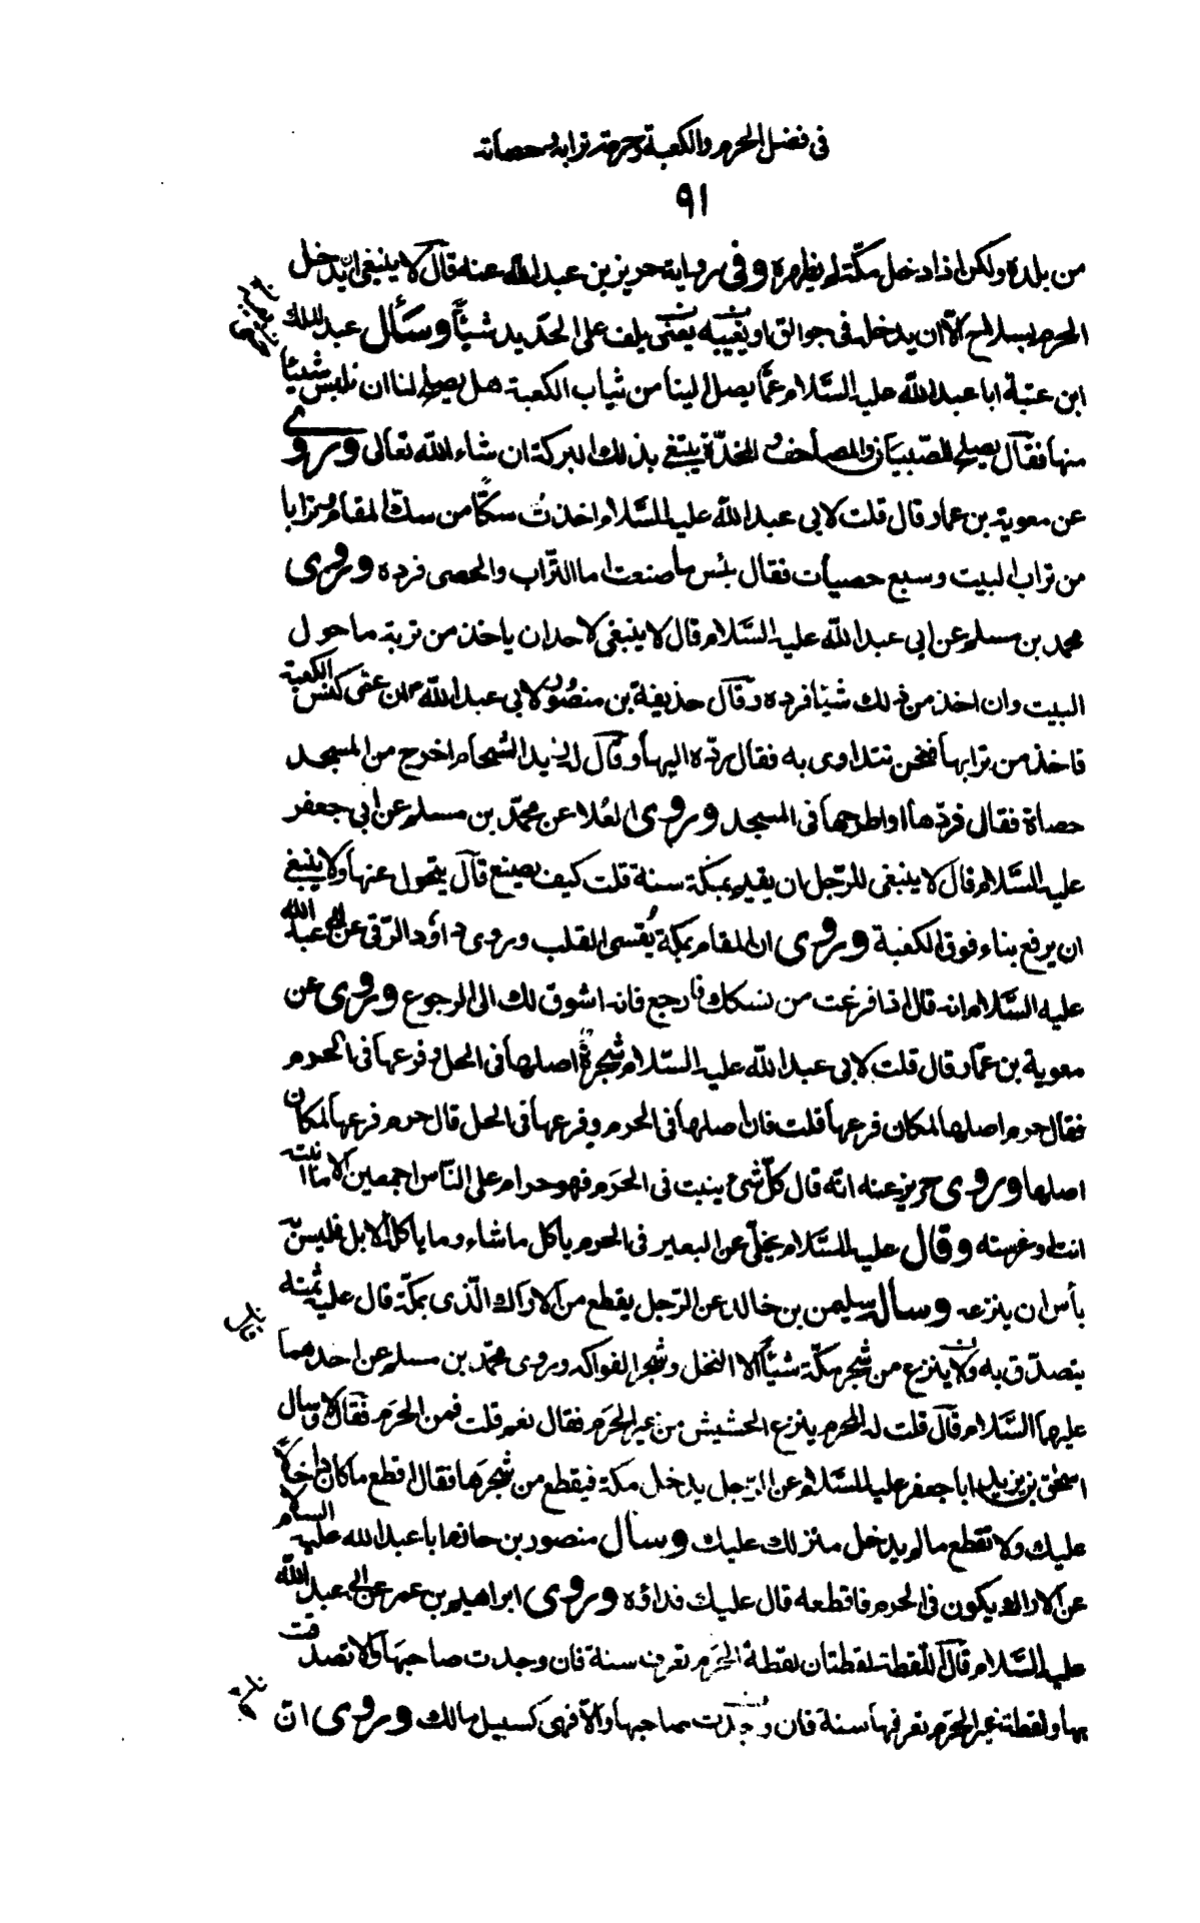 فى فضل الحرم والكعبة وحرمة ترابه وحصاته
٩١
من بلده ولكن اذا دخل مكّة لم يظهره وفى رواية حريز بن عبد الله عنه قال لا ينبغى ان يدخل
الحرم بسلاح الّا ان يدخله فى جوالق او يغيبه يعنى يلف على الحديد شيئًا وسأل عبد الملك
ابن عتبة ابا عبد الله عليه السّلام عمّا يصل الينا من ثياب الكعبة هل يصلح لنا ان نلبس شيئًا
منها فقال يصلح للصّبيان والمصاحف والمخدّة يبتغى بذلك البركة ان شاء الله تعالى وروى
عن معوية بن عمار قال قلت لابى عبد الله عليه السّلام اخذت سكّا من سك المقام وترابا
من تراب البيت وسبع حصيات فقال بئس ما صنعت اما التّراب والحصى فرده وروى
محمد بن مسلم عن ابى عبد الله عليه السّلام قال لا ينبغى لاحد ان ياخذ من تربة ما حول
البيت وان اخذ من ذلك شيئا فرده وقال حذيفة بن منصور لابى عبد الله ان عمى كنس الكعبة
فاخذ من ترابها فنحن نتداوى به فقال ردّه اليها وقال له زيد الشحام اخرج من المسجد
حصاة فقال فردّها او اطرحها فى المسجد وروى العلا عن محمّد بن مسلم عن ابى جعفر
عليه السّلام قال لا ينبغى للرّجل ان يقيم بمكة سنة قلت كيف يصنع قال يتحول عنها ولا ينبغى
ان يرفع بناء فوق الكعبة وروى ان المقام بمكة يُقسى القلب وروى داود الرّقى عن ابى عبد الله
عليه السّلام انه قال اذا فرغت من نسكك فارجع فانه اشوق لك الى الرجوع وروى عن
معوية بن عمّار قال قلت لابى عبد الله عليه السّلام شجرة اصلها فى الحل وفرعها فى الحرم
فقال حرم اصلها لمكان فرعها قلت فان اصلها فى الحرم وفرعها فى الحل قال حرم فرعها لمكان
اصلها وروى حريز عنه انّه قال كلّ شئ ينبت فى الحرم فهو حرام على النّاس اجمعين الا ما انبته
انت او غرسته وقال عليه السّلام يخلّى عن البعير فى الحرم ياكل ما شاء وما ياكل الابل فليس به
بأس ان ينزعه وسأله سليمن بن خالد عن الرّجل يقطع من الاراك الّذى بمكّة قال عليه ثمنه
يتصدّق به ولا ينزع من شجر مكّة شيئًا الا النخل وشجر الفواكه وروى محمّد بن مسلم عن احدهما
عليهما السّلام قال قلت له المحرم ينزع الحشيش من غير الحرم فقال نعم قلت فمن الحرم فقال لا وسال
اسحق بن يزيد ابا جعفر عليه السّلام عن الرّجل يدخل مكة فيقطع من شجرها فقال اقطع ما كان داخلًا
عليك ولا تقطع ما لم يدخل منزلك عليك وسأل منصور بن حازم ابا عبد الله عليه السلام
عن الاراك يكون فى الحرم فاقطعه قال عليك فداؤه وروى ابراهيم بن عمر عن ابى عبد الله
عليه السّلام قال اللّقطة لقطتان لقطة الحرم تعرف سنة فان وجدت صاحبها والا تصدقت
بها ولقطة غير الحرم تعرفها سنة فان وجدت صاحبها والّا فهى كسبيل مالك وروى انّ